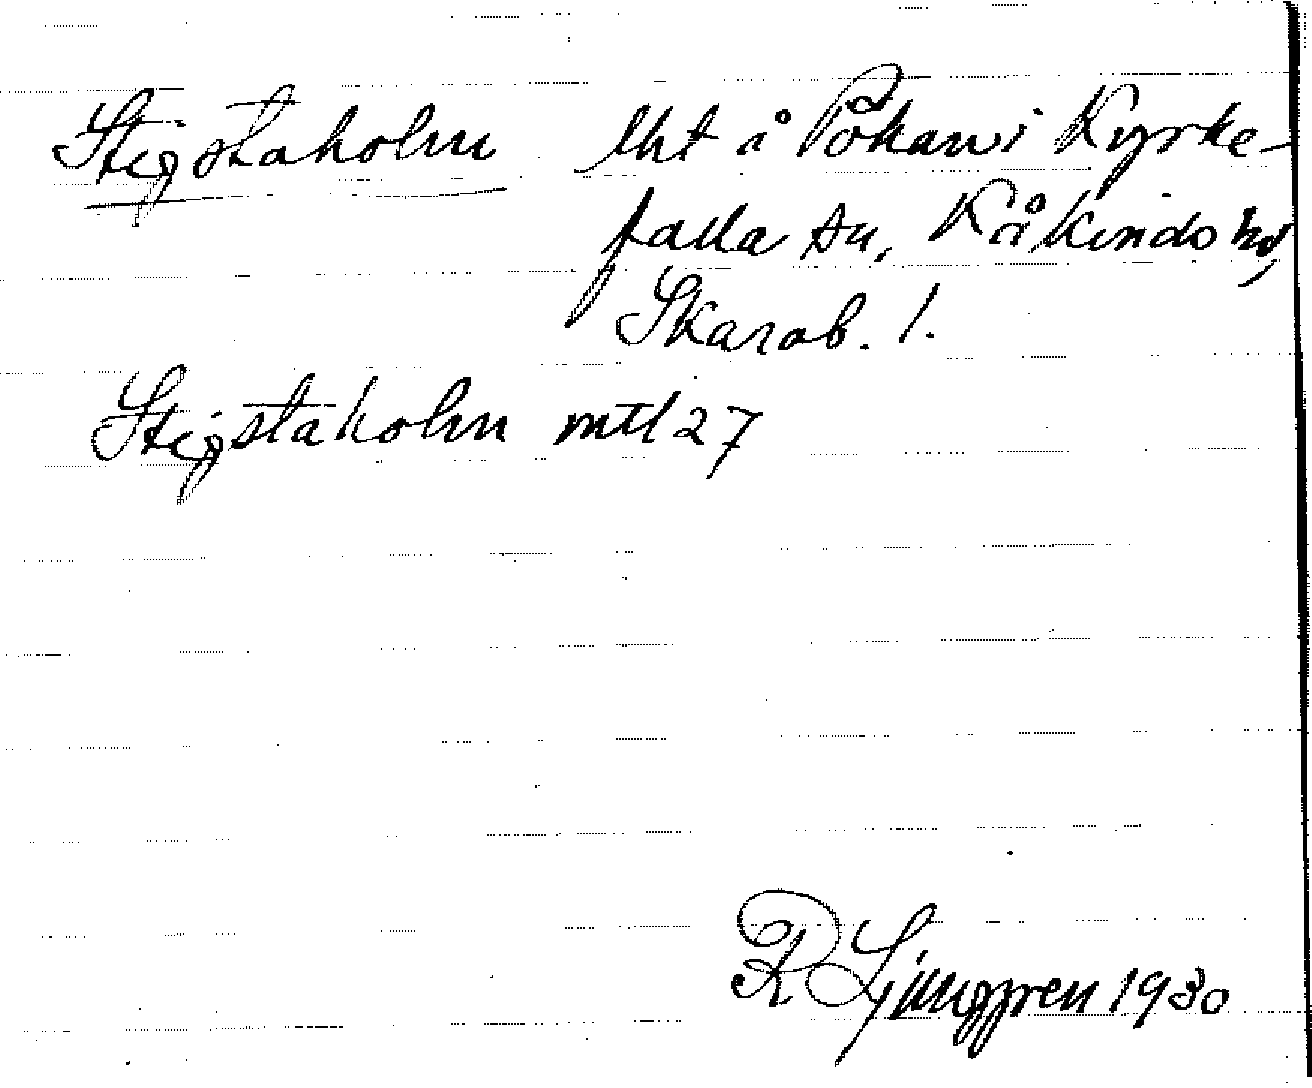 Stigstaholm lht å Påkan i Kyrke-
falla sn, Kåkinds hd,
Skarab. l.
Stigstaholm mtl 27
R Ljunggren 1930